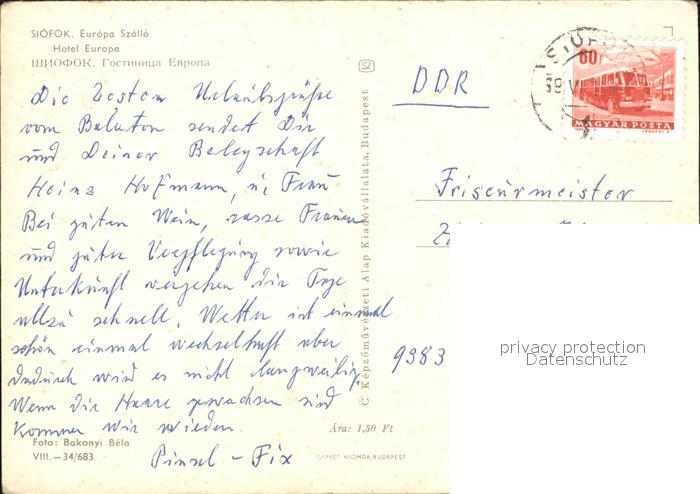 SIÓFOK. Európa Szálló
Hotel Europa
ШИОФОК. Гостиница Европа
Die besten Urlaubsgrüße
vom Balaton sendet Dir
und Deiner Belegschaft
Heinz Hofmann, u. Frau
Bei guten Wein, rasse Frauen
und guter Verpflegung sowie
Unterkunft vergehen die Tage
allzu schnell. Wetter ist einmal
schön einmal wechselhaft aber
dadurch wird es nicht langweilig.
Wenn die Haare gewachsen sind
kommen wir wieder.
Pinsel - Fix
Foto: Bakonyi Béla
VIII. — 34/683
SZ
© Képzőművészeti Alap Kiadóvállalata, Budapest
Ára: 1,50 Ft
OFFSET-NYOMDA, BUDAPEST
DDR
SIÓFOK
60f
MAGYAR POSTA
Friseurmeister
9383
privacy protection
Datenschutz